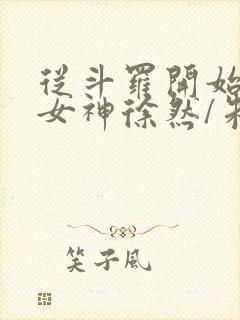 從斗羅開始
女神徐然/
笑子风